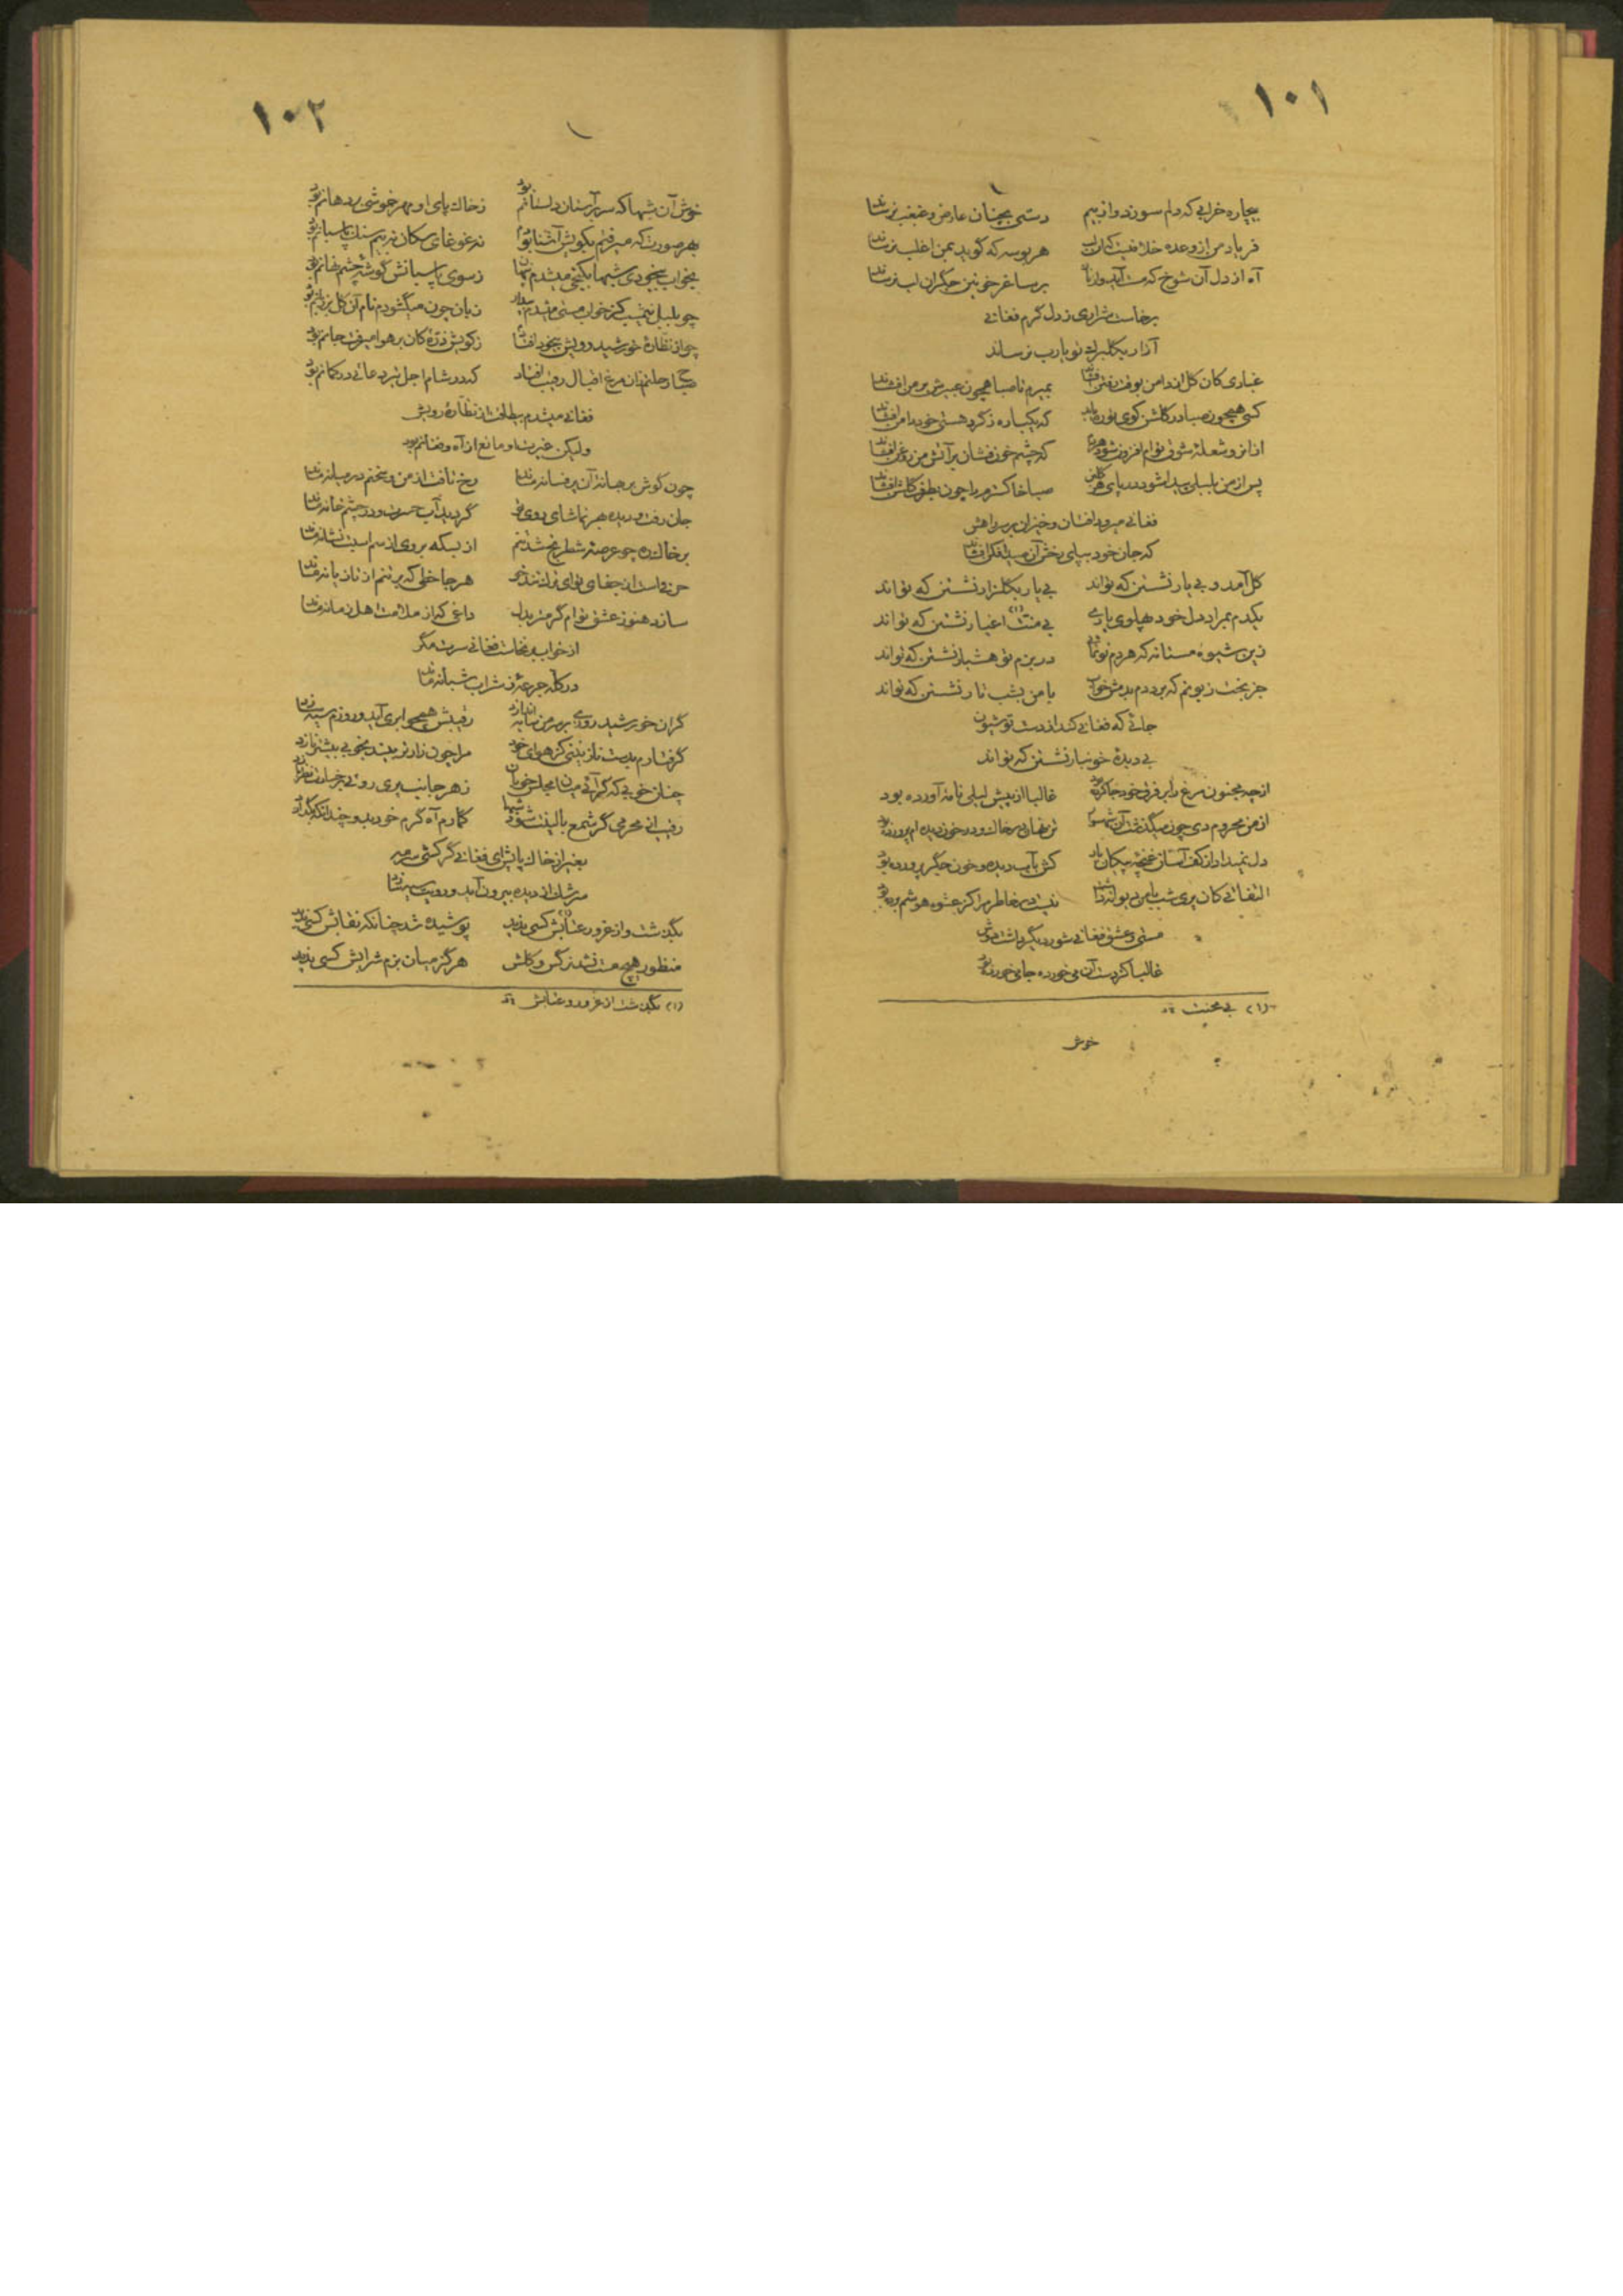 ۱۰۱
بیچاره خرابی که دلم سوزد و از بیم دستی بچنان عارض و غبغب نرساند
فریاد من از وعده خلافیست کزان لب هر بوسه که گوید بمن اغلب نرساند
آه از دل آن شوخ که مست آید و از ناز بر ساغر خونین جگران لب نرساند
برخاست شراری ز دل گرم فغانی
آزار بگلبرگ تو یارب نرساند
غباری کان گل اندامن بوقت رفتن افشاند بمیرم تا صبا همچون عبیرش بر من افشاند
کسی همچون صبا در گلشن کوی تو ره یابد که یکباره ز گرد هستی خود دامن افشاند
ازانرو شعلهٔ شوق توام افزون شود هردم که چشم خون فشان بر آتش من روغن افشاند
پس از من بلبلی پیدا شود در پای هر گلبن صبا خاکسترم را چون بطرف گلشن افشاند
فغانی میرود افتان و خیزان بر سر راهش
که جان خود بپای رخش آن صید افکن افشاند
گل آمد و بی یار نشستن که تواند بی یار بگلزار نشستن که تواند
یکدم بمراد دل خود پهلوی یاری بی منت(۱) اغیار نشستن که تواند
زین شیوهٔ مستانه که هر دم تو نمائی در بزم تو هشیار نشستن که تواند
جز بخت زبونم که برد دم بدمش خواب با من بشب تار نشستن که تواند
جائی که فغانی کند از دست تو شیون
بی دیدهٔ خونبار نشستن که تواند
از چه مجنون مرغ را بر فرق خود جا کرده بود غالبا از پیش لیلی نامهٔ آورده بود
از من محروم دی چون میگذشت آن شهسوار تن نهان در خاک و در خون دیده ام پرورده بود
دل نمیداد از کف آسان غنچهٔ پیکان یار کش بآب دیده و خون جگر پرورده بود
التفاتی کان پری شب با من دیوانه داشت نیست در خاطر مرا کز عشوه هوشم برده بود
مستی و عشق فغانی شور دیگر داشت دوش
غالبا کز دست آن می خورده جامی خورده بود
(۱) بی محنت
خوش
۱۰۲
خوش آن شبها که سر بر آستان دلستانم بود ز خاک پای او مهر خموشی بر دهانم بود
بهر صورت که میرفتم بکویش آشنا بودم نه غوغای سکان نه بیم سنگ پاسبانم بود
بخواب بیخودی شبها بکنجی میشدم پنهان ز سوی پاسبانش گوشهٔ چشم نهانم بود
چو بلبل نیمشب کز خواب مستی میشدم بیدار زبان چون میگشودم نام آن گل بر زبانم بود
چو از نظارهٔ خورشید رویش بیخود افتادم ز کویش ذرهٔ کان بر هوا میرفت جانم بود
که در شام اجل تیر دعائی در کمانم بود
فغانی میشدم بیطاقت از نظارهٔ رویش
ولیکن غیرت او مانع از آه و فغانم بود
چون گوش بر جانهٔ آن پر فسانه ماند رخ تافت از من و سخنم در میانه ماند
جان رفت و دیده بهر تماشای روی تو گردید آب حسرت و در چشم خانه ماند
بر خاک ره چو عرصهٔ شطرنج شد تنم از بسکه بروی از سم اسبت نشانه ماند
هر جا خطی که بر تنم از تازیانه ماند
سازد هنوز عشق توام گرم تر بدل داغی که از ملامت اهل زمانه ماند
از خواب برنخاست فغانی سرت مگر
در کله جرعهٔ ز شراب شبانه ماند
گران خورشید روی بر سر من سایه اندازد رقیبش همچو ابری آید و روزم سیه سازد
گرفتارم بدست نازنینی کز هوای خود مرا چون زار تر بیند بخوبی بیشتر نازد
چنان خوبی که گر آئی میان مجلس خوبان ز هر جانب پری روئی برخسارت نظر بازد
رقیب از محرمی گر شمع بالینت شود شبها گذارم آه گرم خود بدو چندانکه بگدازد
بغیر از خاک پایش ای فغانی گر کشی سرمه
سرشک از دیده بیرون آید و رویت سیه سازد
بگذشت و از غرور عتابش(۱) کسی ندید پوشیده شد چنانکه نقابش کسی ندید
منظور هیچ مست نشد نرگس و گلش هرگز میان بزم شرابش کسی ندید
(۱) بگذشت از غرور و عتابش